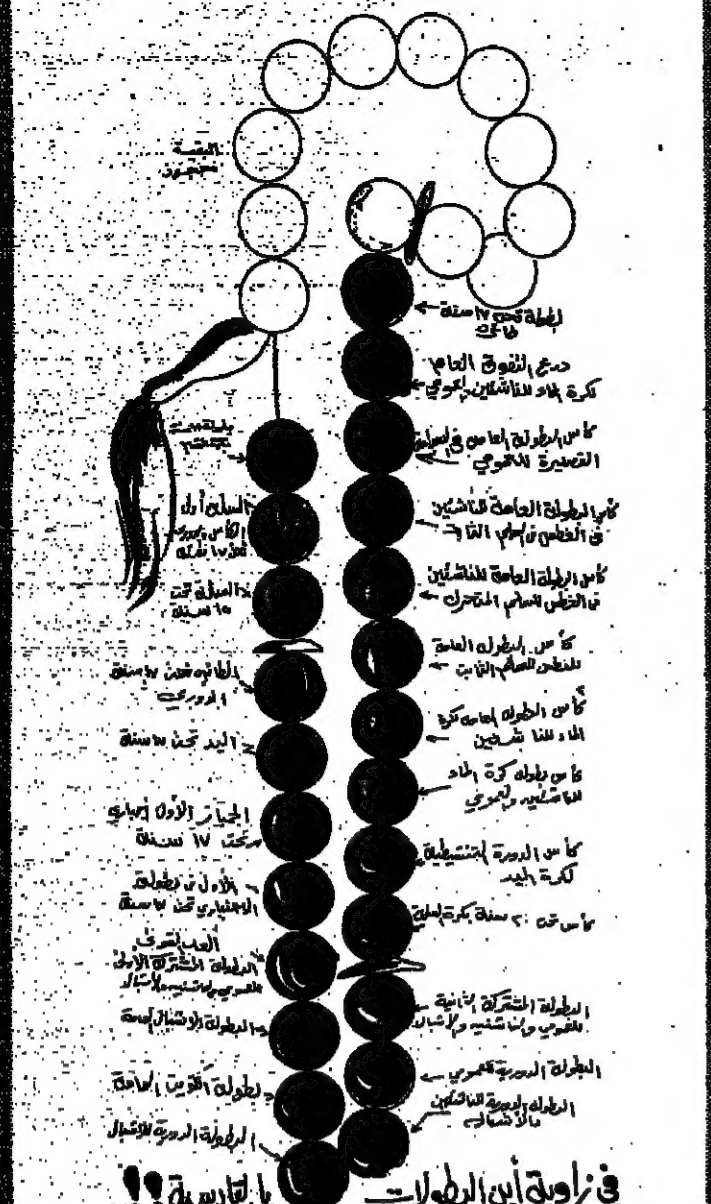 البقية
محجوزة
لبطولة تحت ١٧ سنة
درع التفوق العام
لكرة الماء للناشئين والعمومي
كأس البطولة العامة في السباحة
القصيرة للعمومي
كأس البطولة العامة للناشئين
في الغطس للسلم الثابت
كأس البطولة العامة للناشئين
في الغطس للسلم المتحرك
كأس البطولة العامة
للغطس للسلم الثابت
كأس البطولة العامة لكرة
الماء للناشئين
كأس بطولة كرة الماء
للناشئين والعمومي
كأس الدورة التنشيطية
لكرة اليد
كأس تحت ٢٠ سنة بكرة السلة
البطولة المشتركة الثانية
للعمومي والناشئين والأشبال
البطولة الدورية للعمومي
البطولة الدورية للناشئين
والأشبال
السلة أول
الكأس
تحت ١٧ سنة
السلة تحت
١٥ سنة
الطائرة تحت ١٧ سنة
الدوري
اليد تحت ١٧ سنة
الجمباز الأول إجباري
تحت ١٧ سنة
الأول في بطولة
الاختياري تحت ١٧ سنة
ألعاب القوى
البطولة المشتركة الأولى
للعمومي والناشئين والأشبال
البطولة للأشبال العامة
بطولة الكويت العامة
البطولة الدورية للأشبال
في زاوية أين البطولات يا لقادسية ؟؟